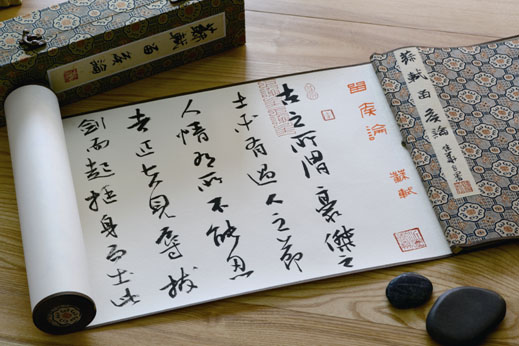 蘇軾留侯論
蘇軾留侯論
留侯論
蘇軾
古之所謂豪傑之
士必有過人之節
人情有所不能忍
者匹夫見辱拔
劍而起挺身而鬥此